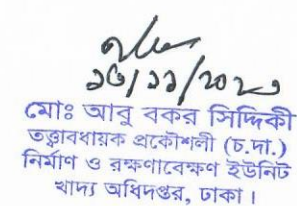 ১৬/১১/২০২০
মোঃ আবু বকর সিদ্দিকী
তত্ত্বাবধায়ক প্রকৌশলী (চ.দা.)
নির্মাণ ও রক্ষণাবেক্ষণ ইউনিট
খাদ্য অধিদপ্তর, ঢাকা।